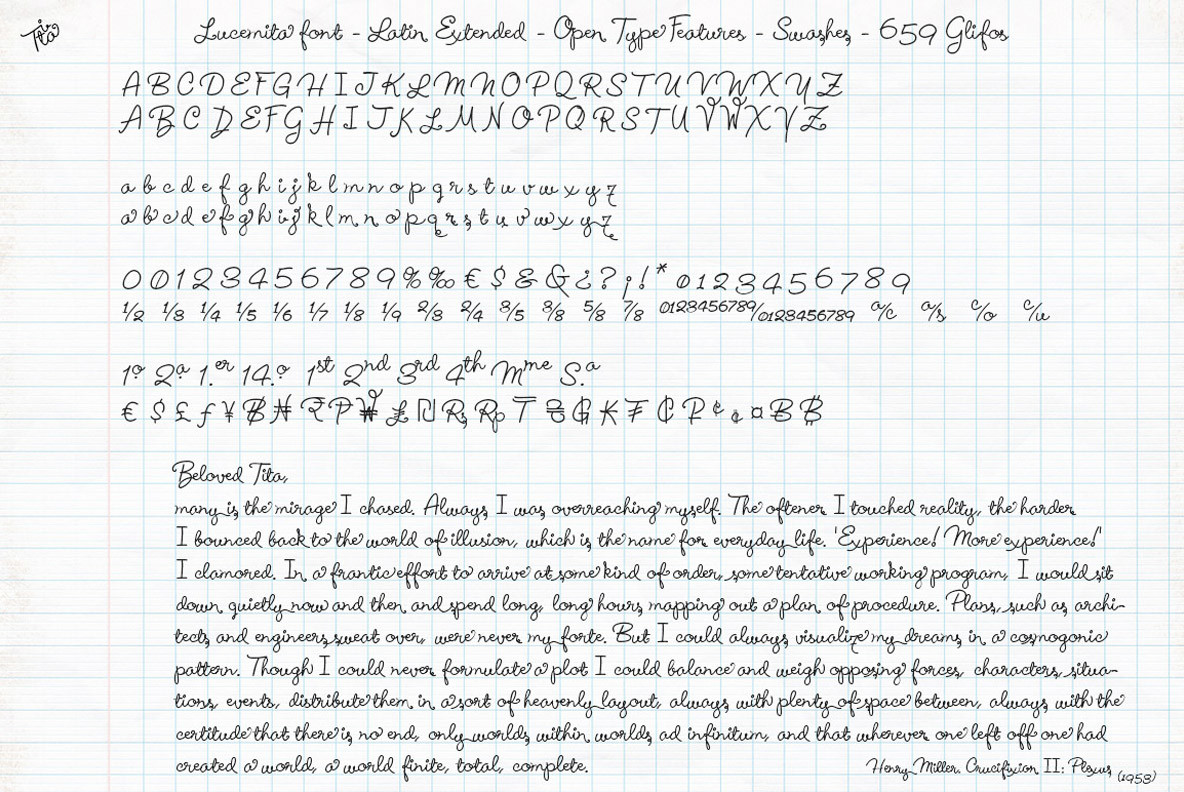 Tita
Lucernita font - Latin Extended - Open Type Features - Swashes - 659 Glifos
A B C D E F G H I J K L M N O P Q R S T U V W X Y Z
A B C D E F G H I J K L M N O P Q R S T U V W X Y Z
a b c d e f g h i j k l m n o p q r s t u v w x y z
a b c d e f g h i j k l m n o p q r s t u v w x y z
0 0 1 2 3 4 5 6 7 8 9 % ‰ € $ & & ¿ ? ¡ ! * 0 1 2 3 4 5 6 7 8 9
1/2 1/3 1/4 1/5 1/6 1/7 1/8 1/9 2/3 2/4 3/5 3/8 5/8 7/8 0123456789/0123456789 a/c a/s c/o c/u
1º 2ª 1.er 14.º 1st 2nd 3rd 4th Mme S.a
€ $ £ ƒ ¥ Ƀ ₦ ₹ ₱ ₩ ₤ ₪ Rs Rp ₸ ₴ ₲ ₭ ₮ ₵ ₽ ¢ ¤ B ₿
Beloved Tita,
many is the mirage I chased. Always I was overreaching myself. The oftener I touched reality, the harder
I bounced back to the world of illusion, which is the name for everyday life. 'Experience! More experience!'
I clamored. In a frantic effort to arrive at some kind of order, some tentative working program, I would sit
down quietly now and then and spend long, long hours mapping out a plan of procedure. Plans, such as archi-
tects and engineers sweat over, were never my forte. But I could always visualize my dreams in a cosmogonic
pattern. Though I could never formulate a plot I could balance and weigh opposing forces, characters, situa-
tions, events, distribute them in a sort of heavenly layout, always with plenty of space between, always with the
certitude that there is no end, only worlds within worlds ad infinitum, and that wherever one left off one had
created a world, a world finite, total, complete.
Henry Miller. Crucifixion II: Plexus (1958)